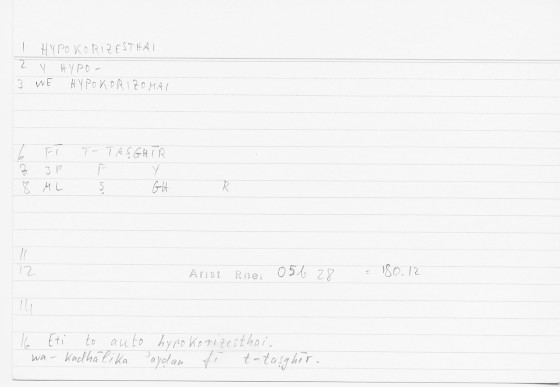 1 HYPOKORIZESTHAI
2 Y HYPO-
3 WE HYPOKORIZOMAI
6 FĪ T-TAṢGHĪR
7 JF F Y
8 ML Ṣ GH R
11
12 Arist Rhet 056 28 = 180.12
14
16 Eti to auto hypokorizesthai.
wa-kadhālika ayḍan fī t-taṣghīr.